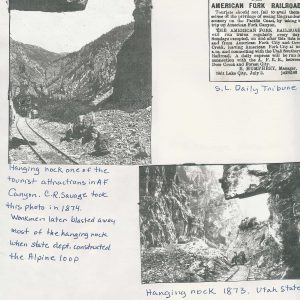 AMERICAN FORK RAILROAD
Tourists should not fail to avail them-
selves of the privilege of seeing the grandest
scenery on the Pacific Coast, by taking
trip up American Fork Canyon.
THE AMERICAN FORK RAILROAD
will run trains regularly every day
Sundays excepted, on and after this date to
and from American Fork City and Deer
Creek, leaving American Fork City at
and connecting with the Utah Southern
Railroad. A daily express will be run
connection with the A. F. R. R. between
Deer Creek and Forest City.
Salt Lake City, July
S.L. Daily Tribune
Hanging rock one of the
tourist attractions in A.F
Canyon. C.R. Savage took
this photo in 1874.
Workmen later blasted away
most of the hanging rock
when state dept. constructed
the Alpine loop
Hanging rock 1873. Utah State